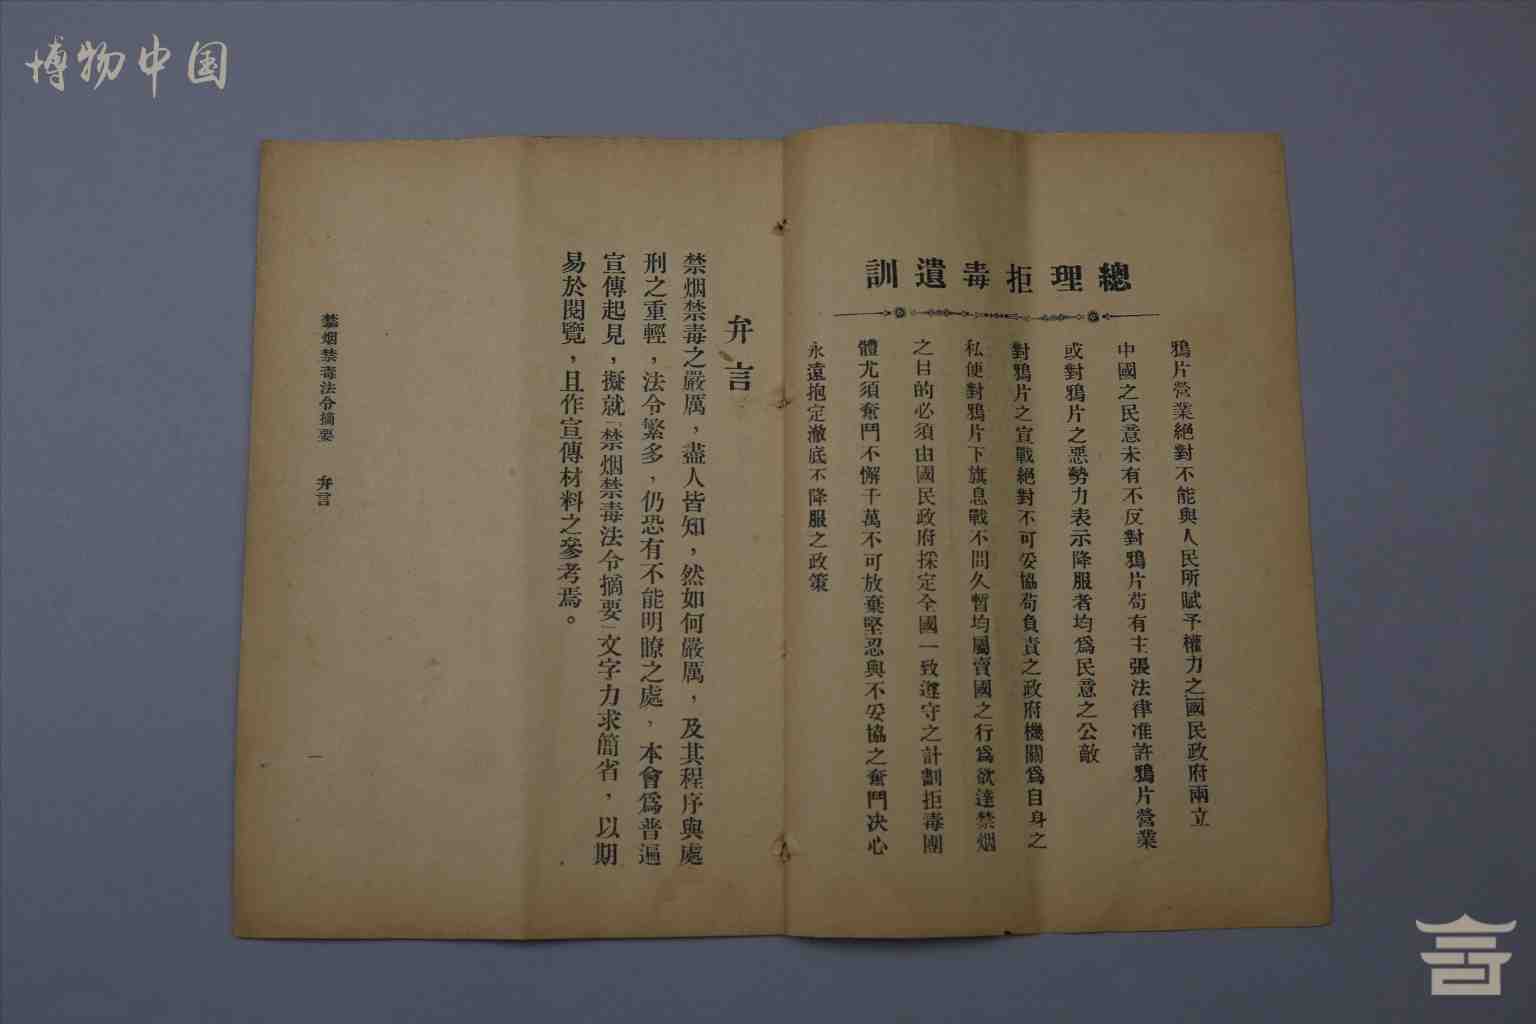 博物中国
總理拒毒遺訓
鴉片營業絕對不能與人民所賦予權力之國民政府兩立
中國之民意未有不反對鴉片苟有主張法律准許鴉片營業
或對鴉片之惡勢力表示降服者均爲民意之公敵
對鴉片之宣戰絕對不可妥協苟負責之政府機關爲自身之
私便對鴉片下旗息戰不問久暫均屬賣國之行爲欲達禁烟
之目的必須由國民政府採定全國一致遵守之計劃拒毒團
體尤須奮鬥不懈千萬不可放棄堅忍與不妥協之奮鬥决心
永遠抱定澈底不降服之政策
弁言
禁烟禁毒之嚴厲，盡人皆知，然如何嚴厲，及其程序與處
刑之重輕，法令繁多，仍恐有不能明瞭之處，本會爲普遍
宣傳起見，擬就「禁烟禁毒法令摘要」文字力求簡省，以期
易於閱覽，且作宣傳材料之參考焉。
禁烟禁毒法令摘要 弁言
一